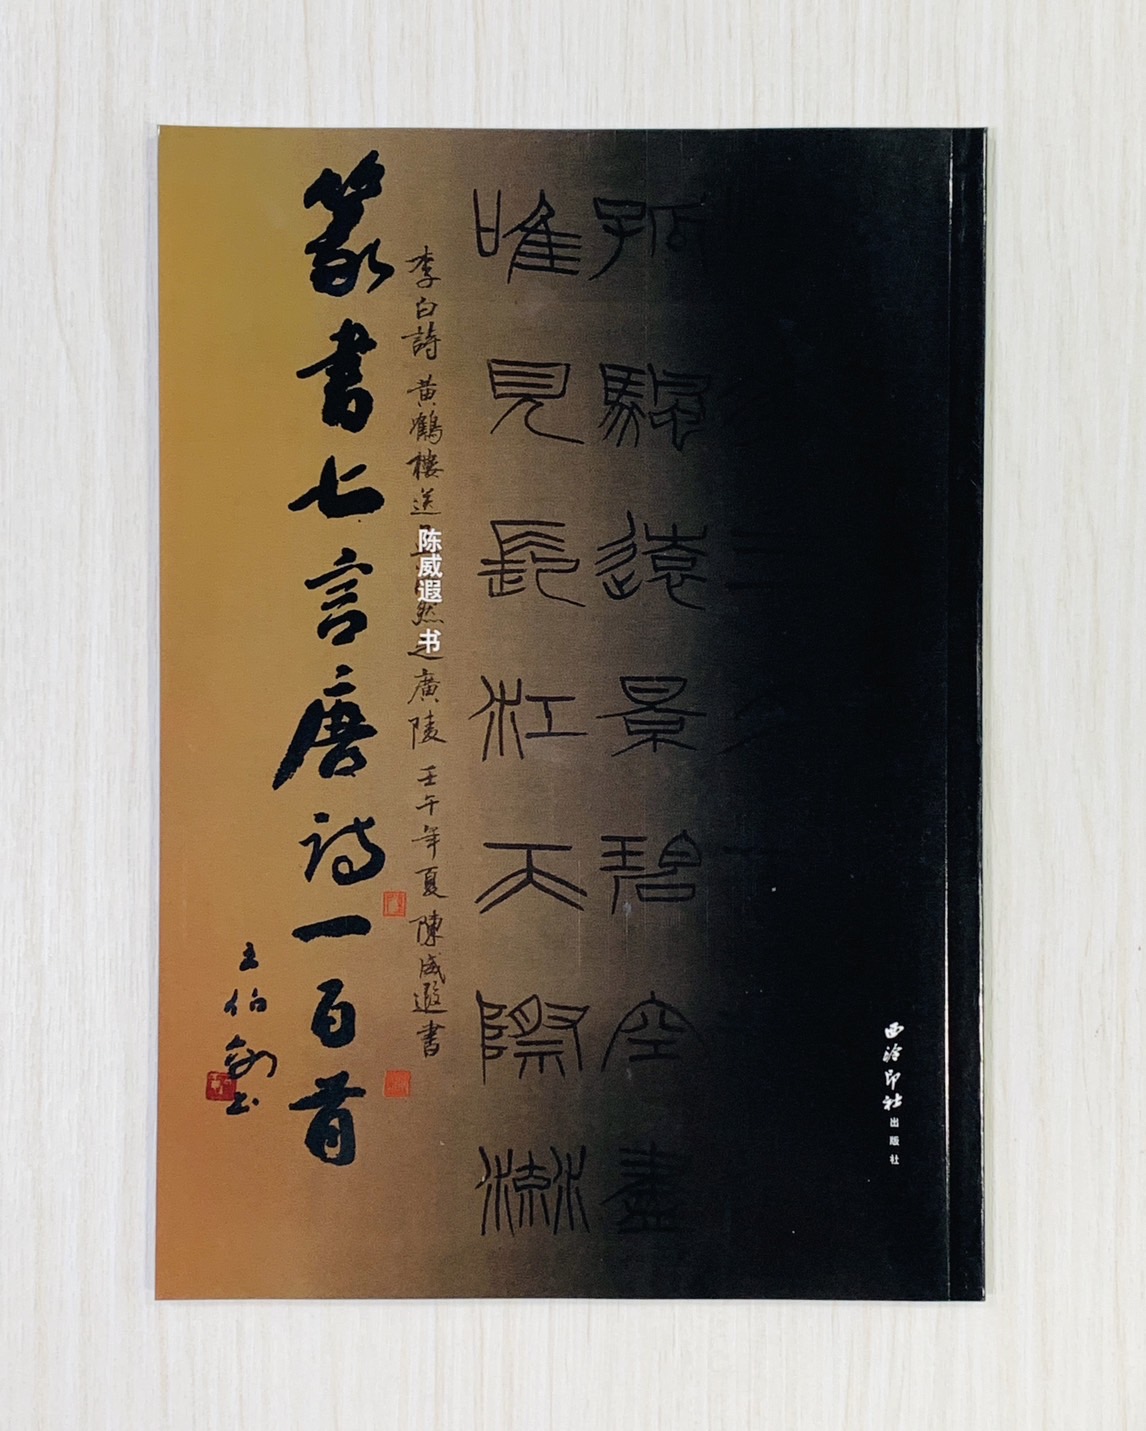 西泠印社
出版社
孤颿遠景碧空盡
唯見長江天際流
李白詩 黃鶴樓送然之廣陵 壬午年夏 陳威遐書
陈威遐 书
篆書七言唐诗一百首
王伯敏书